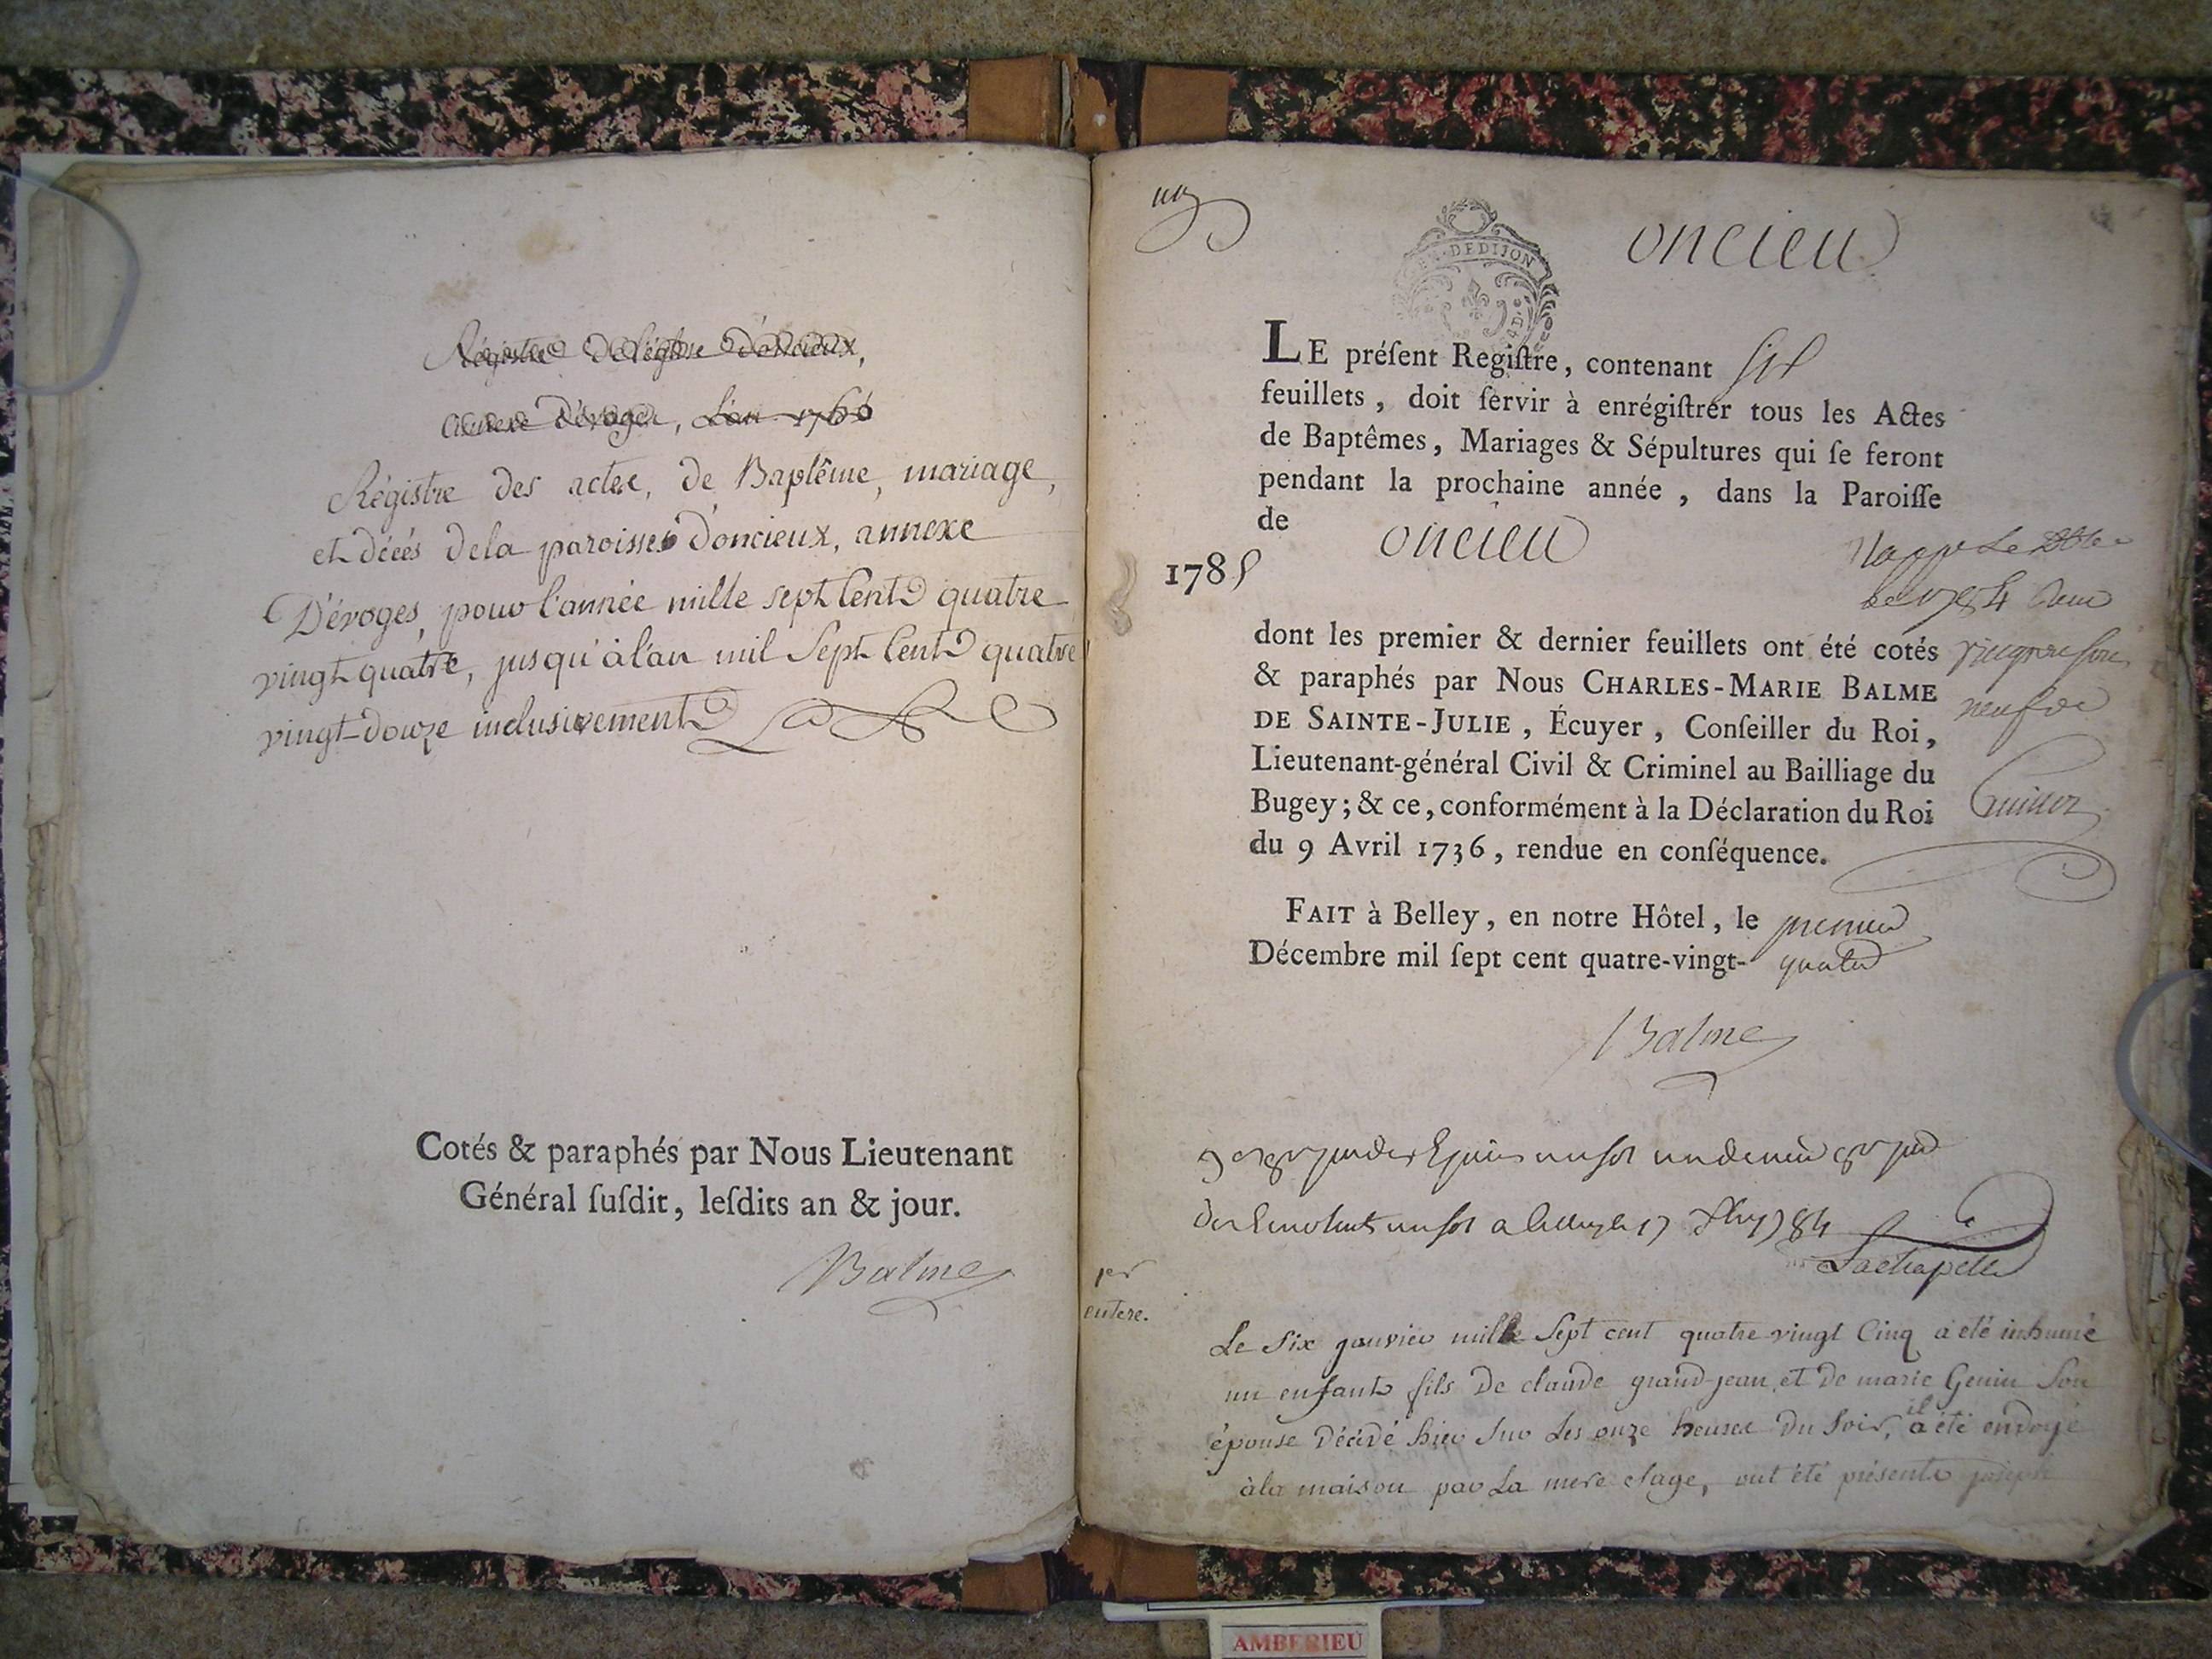 Régistre de l'église d'oncieux,
annexe d'évoges, L'an 1766
Régistre des actes, de Baptême, mariage,
et décés dela paroisse d'oncieux, annexe
D'évoges, pour l'année mille sept Cent quatre
vingt quatre, jusqu'à l'an mil Sept Cent quatre
vingt-douze inclusivement
Cotés & paraphés par Nous Lieutenant
Général ſuſdit, leſdits an & jour.
Balme
oncieu
DE DIJON
LE préſent Regiſtre, contenant six
feuillets, doit ſervir à enrégiſtrer tous les Actes
de Baptêmes, Mariages & Sépultures qui ſe feront
pendant la prochaine année, dans la Paroiſſe
de oncieu
1785
dont les premier & dernier feuillets ont été cotés
& paraphés par Nous CHARLES-MARIE BALME
DE SAINTE-JULIE, Écuyer, Conſeiller du Roi,
Lieutenant-général Civil & Criminel au Bailliage du
Bugey; & ce, conformément à la Déclaration du Roi
du 9 Avril 1736, rendue en conſéquence.
FAIT à Belley, en notre Hôtel, le premier
Décembre mil ſept cent quatre-vingt- quatre
Balme
Lachapelle
per
entere.
Le Six janvier mille Sept cent quatre vingt Cinq a été inhumé
un enfant fils De claude grand-jean et De marie Genin Son
épouse Décédé hier Sur Les onze heures Du Soir, il a été ondoyé
àla maison par La mere Sage, ont été présents joseph
AMBERIEU